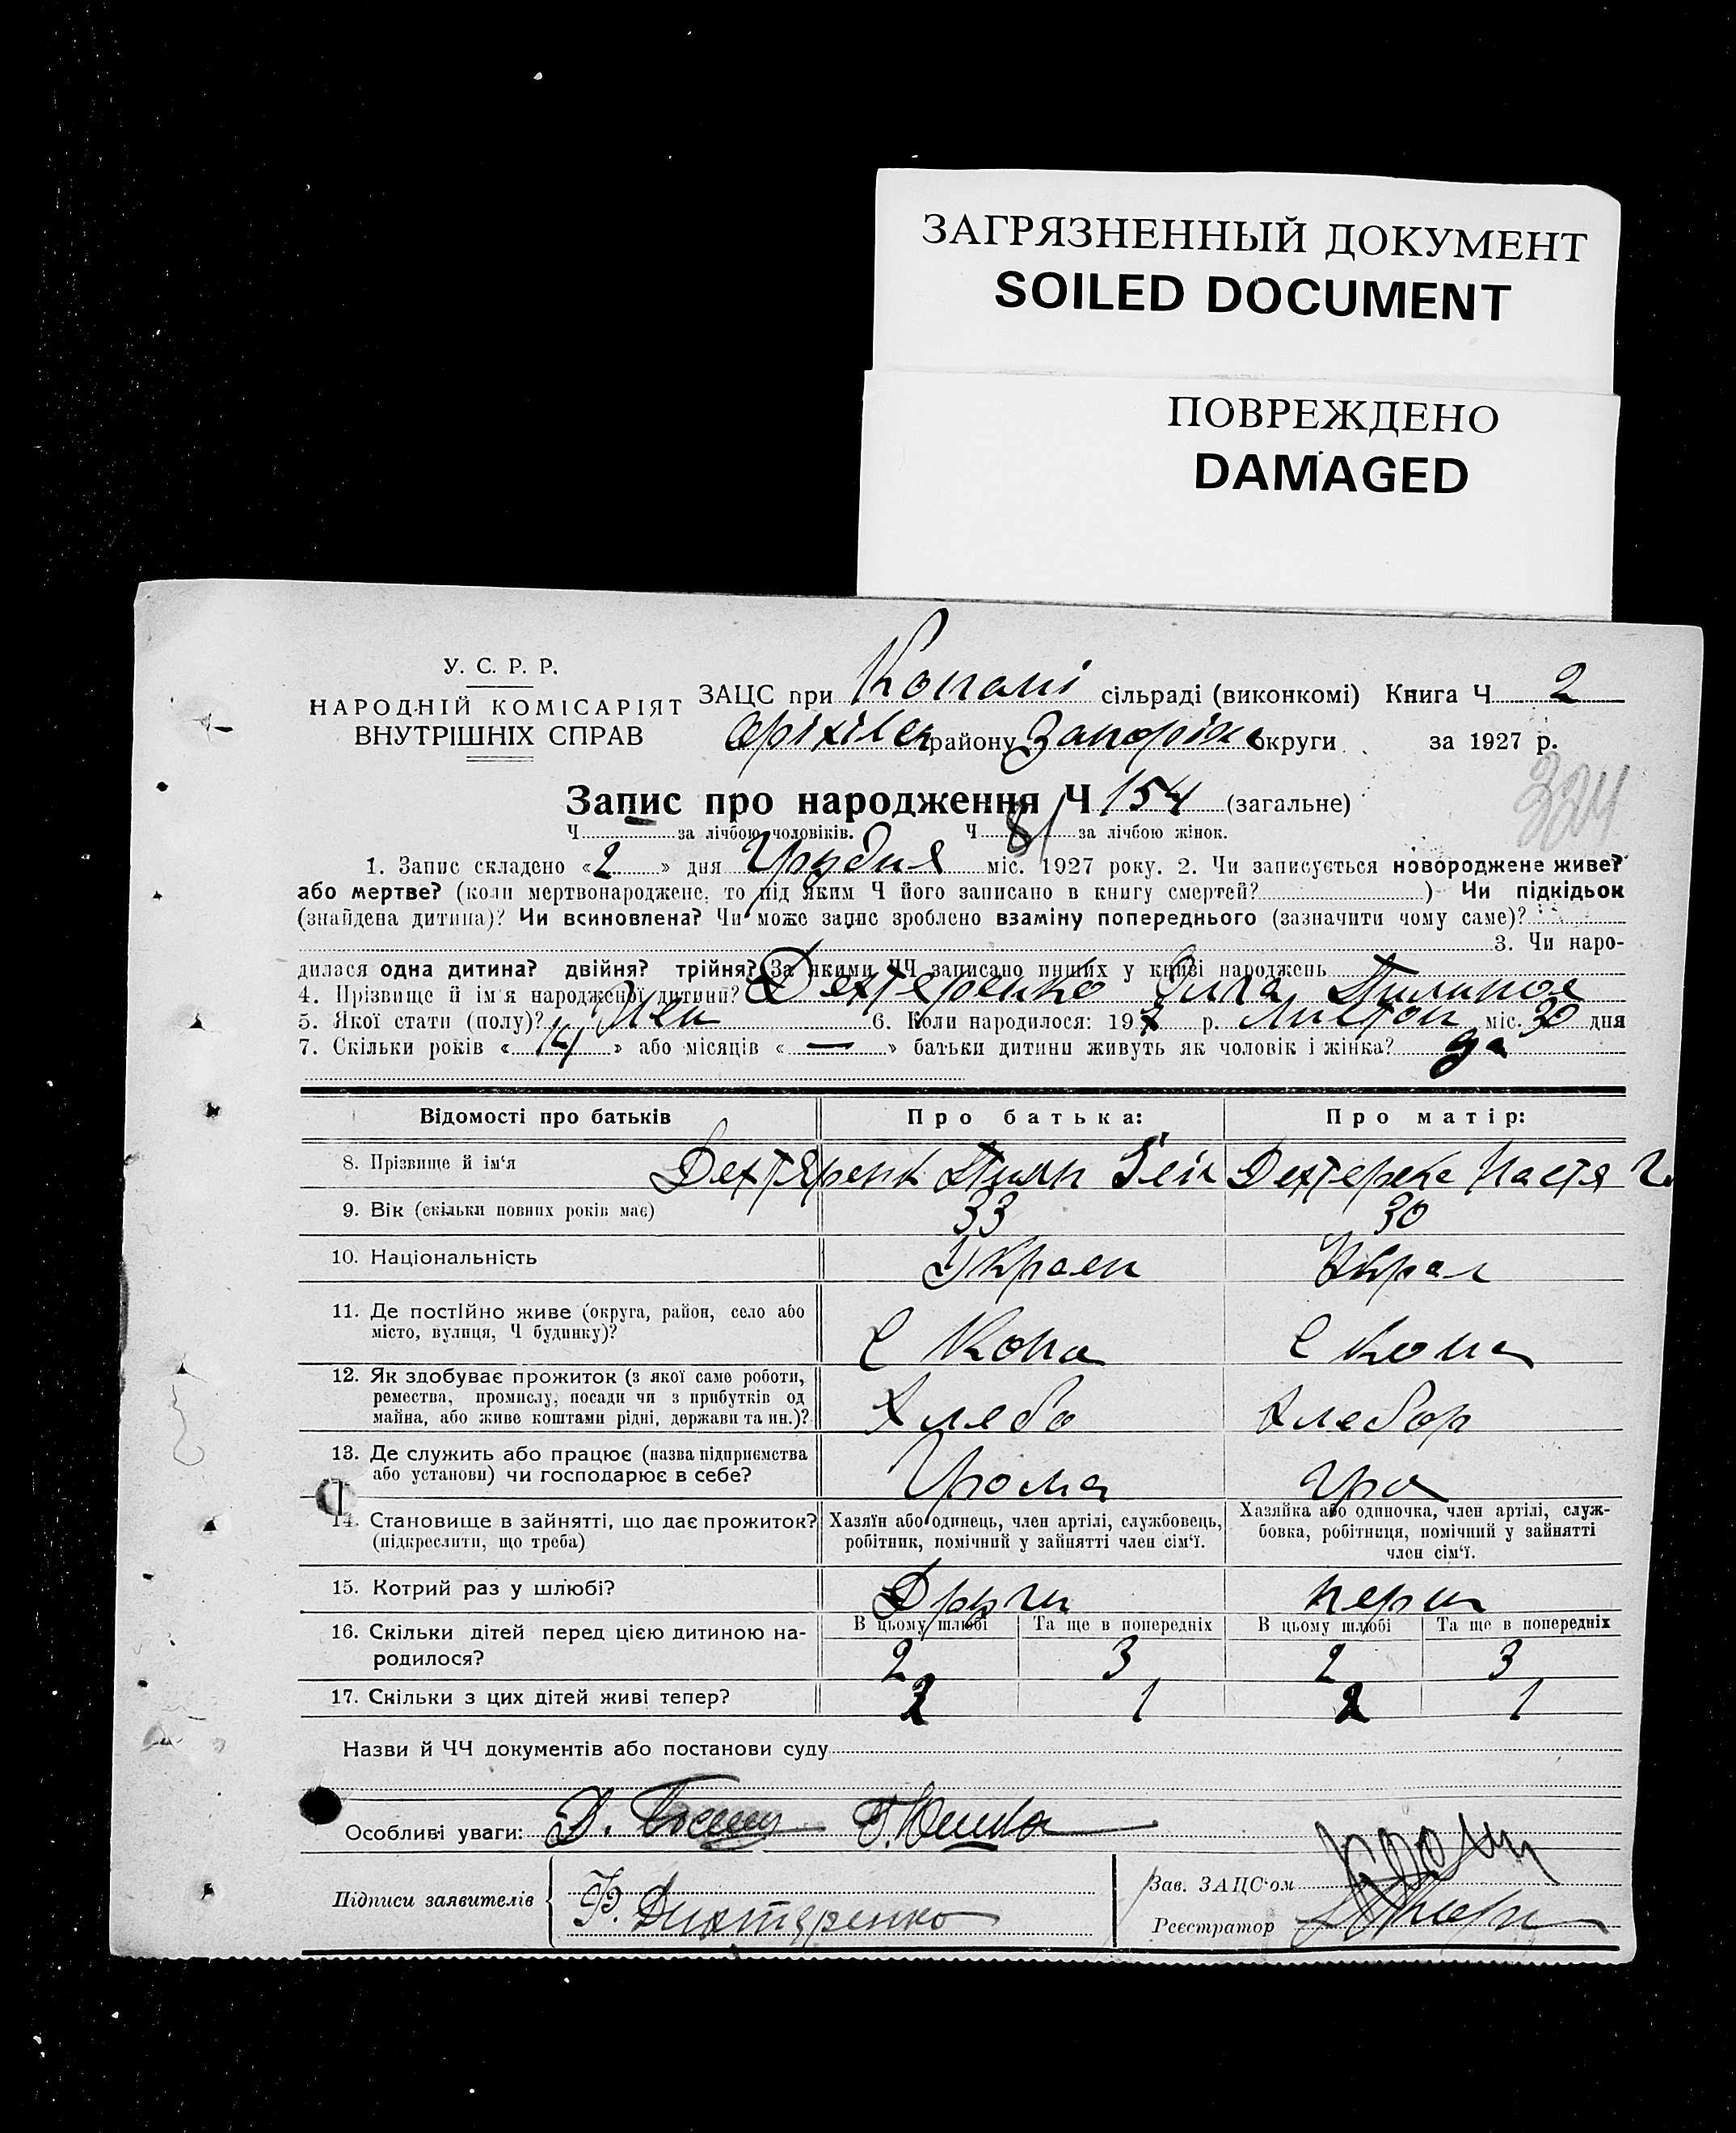 ЗАГРЯЗНЕННЫЙ ДОКУМЕНТ
SOILED DOCUMENT
ПОВРЕЖДЕНО
DAMAGED
У. С. Р. Р.
НАРОДНІЙ КОМІСАРІЯТ
ВНУТРІШНІХ СПРАВ
ЗАЦС при Копані сільраді (виконкомі) Книга Ч. 2
Оріхівск району Запоріж округи за 1927 р.
324
Запис про народження Ч 154 (загальне)
Ч. за лічбою чоловіків. Ч. 81 за лічбою жінок.
1. Запис складено «2» дня Грудня міс. 1927 року. 2. Чи записується новороджене живе?
або мертве? (коли мертвонароджене, то під яким Ч його записано в книгу смертей? ) Чи підкідьок
(знайдена дитина)? Чи всиновлена? Чи може запис зроблено взаміну попереднього (зазначити чому саме)?
3. Чи наро-
дилася одна дитина? двійня? трійня? За якими ЧЧ записано инших у книзі народжень
4. Прізвище й ім'я народженої дитини? Дехтеренко
5. Якої статі (полу)? Жен 6. Коли народилося: 197 р. Листоп міс. 30 дня
7. Скільки років «14» або місяців «—» батьки дитини живуть як чоловік і жінка? да
Відомості про батьків Про батька: Про матір:
8. Прізвище й ім'я Дехтяренк Дехтеренк Настя Г.
9. Вік (скільки повних років має) 33 30
10. Національність Украен Украл
11. Де постійно живе (округа, район, село або
місто, вулиця, Ч будинку)? С Копа С Копа
12. Як здобуває прожиток (з якої саме роботи,
ремества, промислу, посади чи з прибутків од
майна, або живе коштами рідні, держави та ин.)? Хлебо Хлебор
13. Де служить або працює (назва підприємства
або установи) чи господарює в себе? Грома Гро
14. Становище в зайнятті, що дає прожиток?
(підкреслити, що треба)
Хазяїн або одинець, член артілі, службовець,
робітник, помічний у зайнятті член сім'ї.
Хазяйка або одиночка, член артілі, служ-
бовка, робітниця, помічний у зайнятті
член сім'ї.
15. Котрий раз у шлюбі? Други перш
В цьому шлюбі Та ще в попередніх В цьому шлюбі Та ще в попередніх
16. Скільки дітей перед цією дитиною на-
родилося? 2 3 2 3
17. Скільки з цих дітей живі тепер? 2 1 2 1
Назви й ЧЧ документів або постанови суду
Особливі уваги:
Підписи заявителів Ф. Дихтяренко
Зав. ЗАЦС'ом
Реєстратор